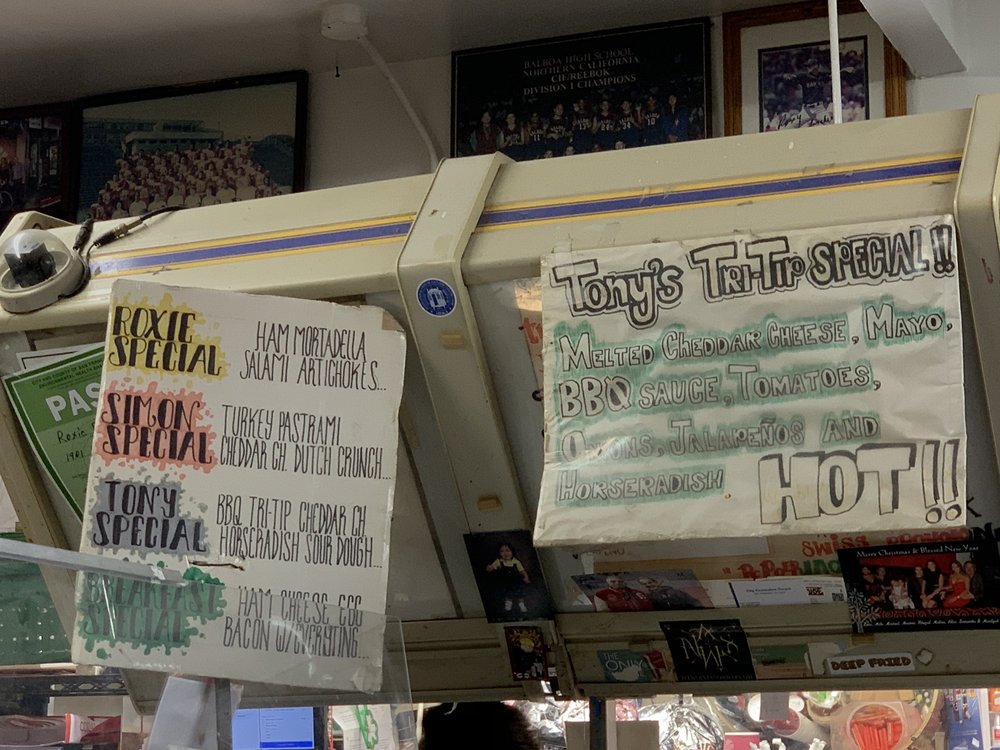 BALBOA HIGH SCHOOL
NORTHERN CALIFORNIA
CIF/REEBOK
DIVISION I CHAMPIONS
TONY'S TRI-TIP SPECIAL!!
MELTED CHEDDAR CHEESE, MAYO,
BBQ SAUCE, TOMATOES,
ONIONS, JALAPEÑOS AND
HORSERADISH HOT!!
ROXIE SPECIAL
HAM MORTADELLA
SALAMI ARTICHOKES...
SIMON SPECIAL
TURKEY PASTRAMI
CHEDDAR CH. DUTCH CRUNCH...
TONY SPECIAL
BBQ TRI-TIP CHEDDAR CH
HORSERADISH SOUR DOUGH...
BREAKFAST SPECIAL
HAM CHEESE EGG
BACON W/EVERYTING...
PAS
Roxie
1901
SWISS
PEPPER JACK
Merry Christmas & Blessed New Year
THE ONLY
DEEP FRIED